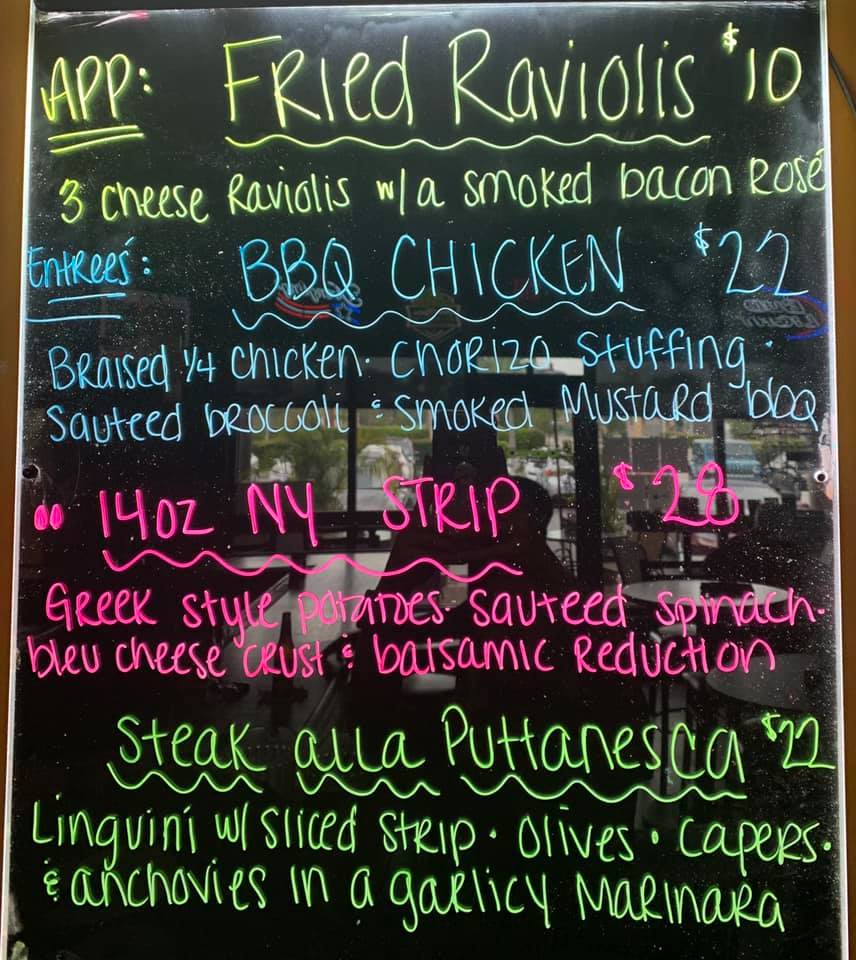 APP: Fried Raviolis $10
3 cheese Raviolis w/a smoked bacon Rosé
Entreés: BBQ CHICKEN $22
Braised 1/4 chicken · Chorizo Stuffing ·
Sauteed broccoli & Smoked Mustard bbq
14oz NY STRIP $28
Greek style potatoes · sauteed spinach ·
bleu cheese crust & balsamic Reduction
Steak alla Puttanesca $22
Linguini w/ sliced strip · olives · capers ·
& anchovies in a garlicy Marinara